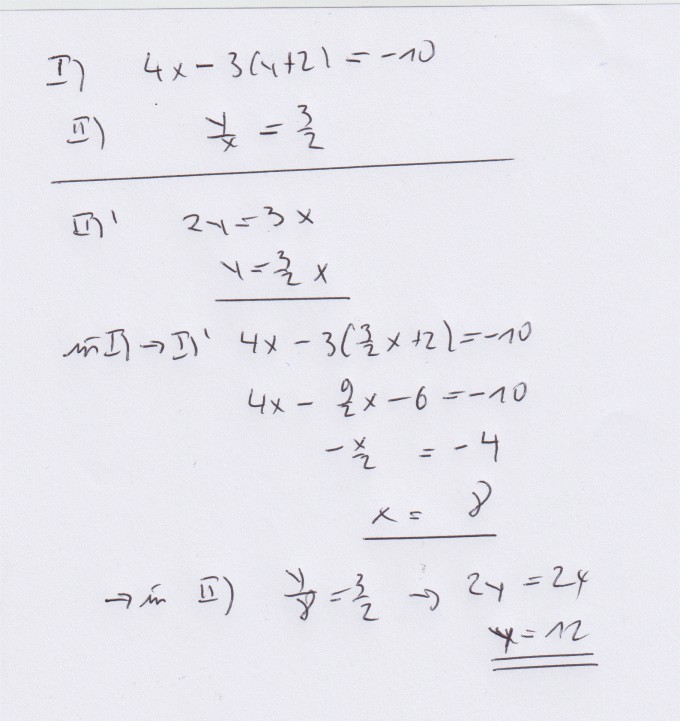 I) 4x - 3(y+2) = -10
II) y/x = 3/2
II)' 2y = 3x
y = 3/2 x
in I) → I)' 4x - 3(3/2 x + 2) = -10
4x - 9/2 x - 6 = -10
- x/2 = -4
x = 8
→ in II) y/8 = 3/2 → 2y = 24
y = 12